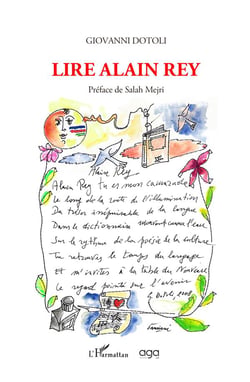 GIOVANNI DOTOLI
LIRE ALAIN REY
Préface de Salah Mejri
Alain Rey
Alain Rey tu es mon camarade
Le long de la route de l'illumination
Du trésor de la langue
Dans le dictionnaire
Sur le rythme de la poésie de la culture
Tu retrouves le temps du langage
et m'invites à la table du Nouveau
Le regard pointé sur l'avenir
L'Harmattan
aga